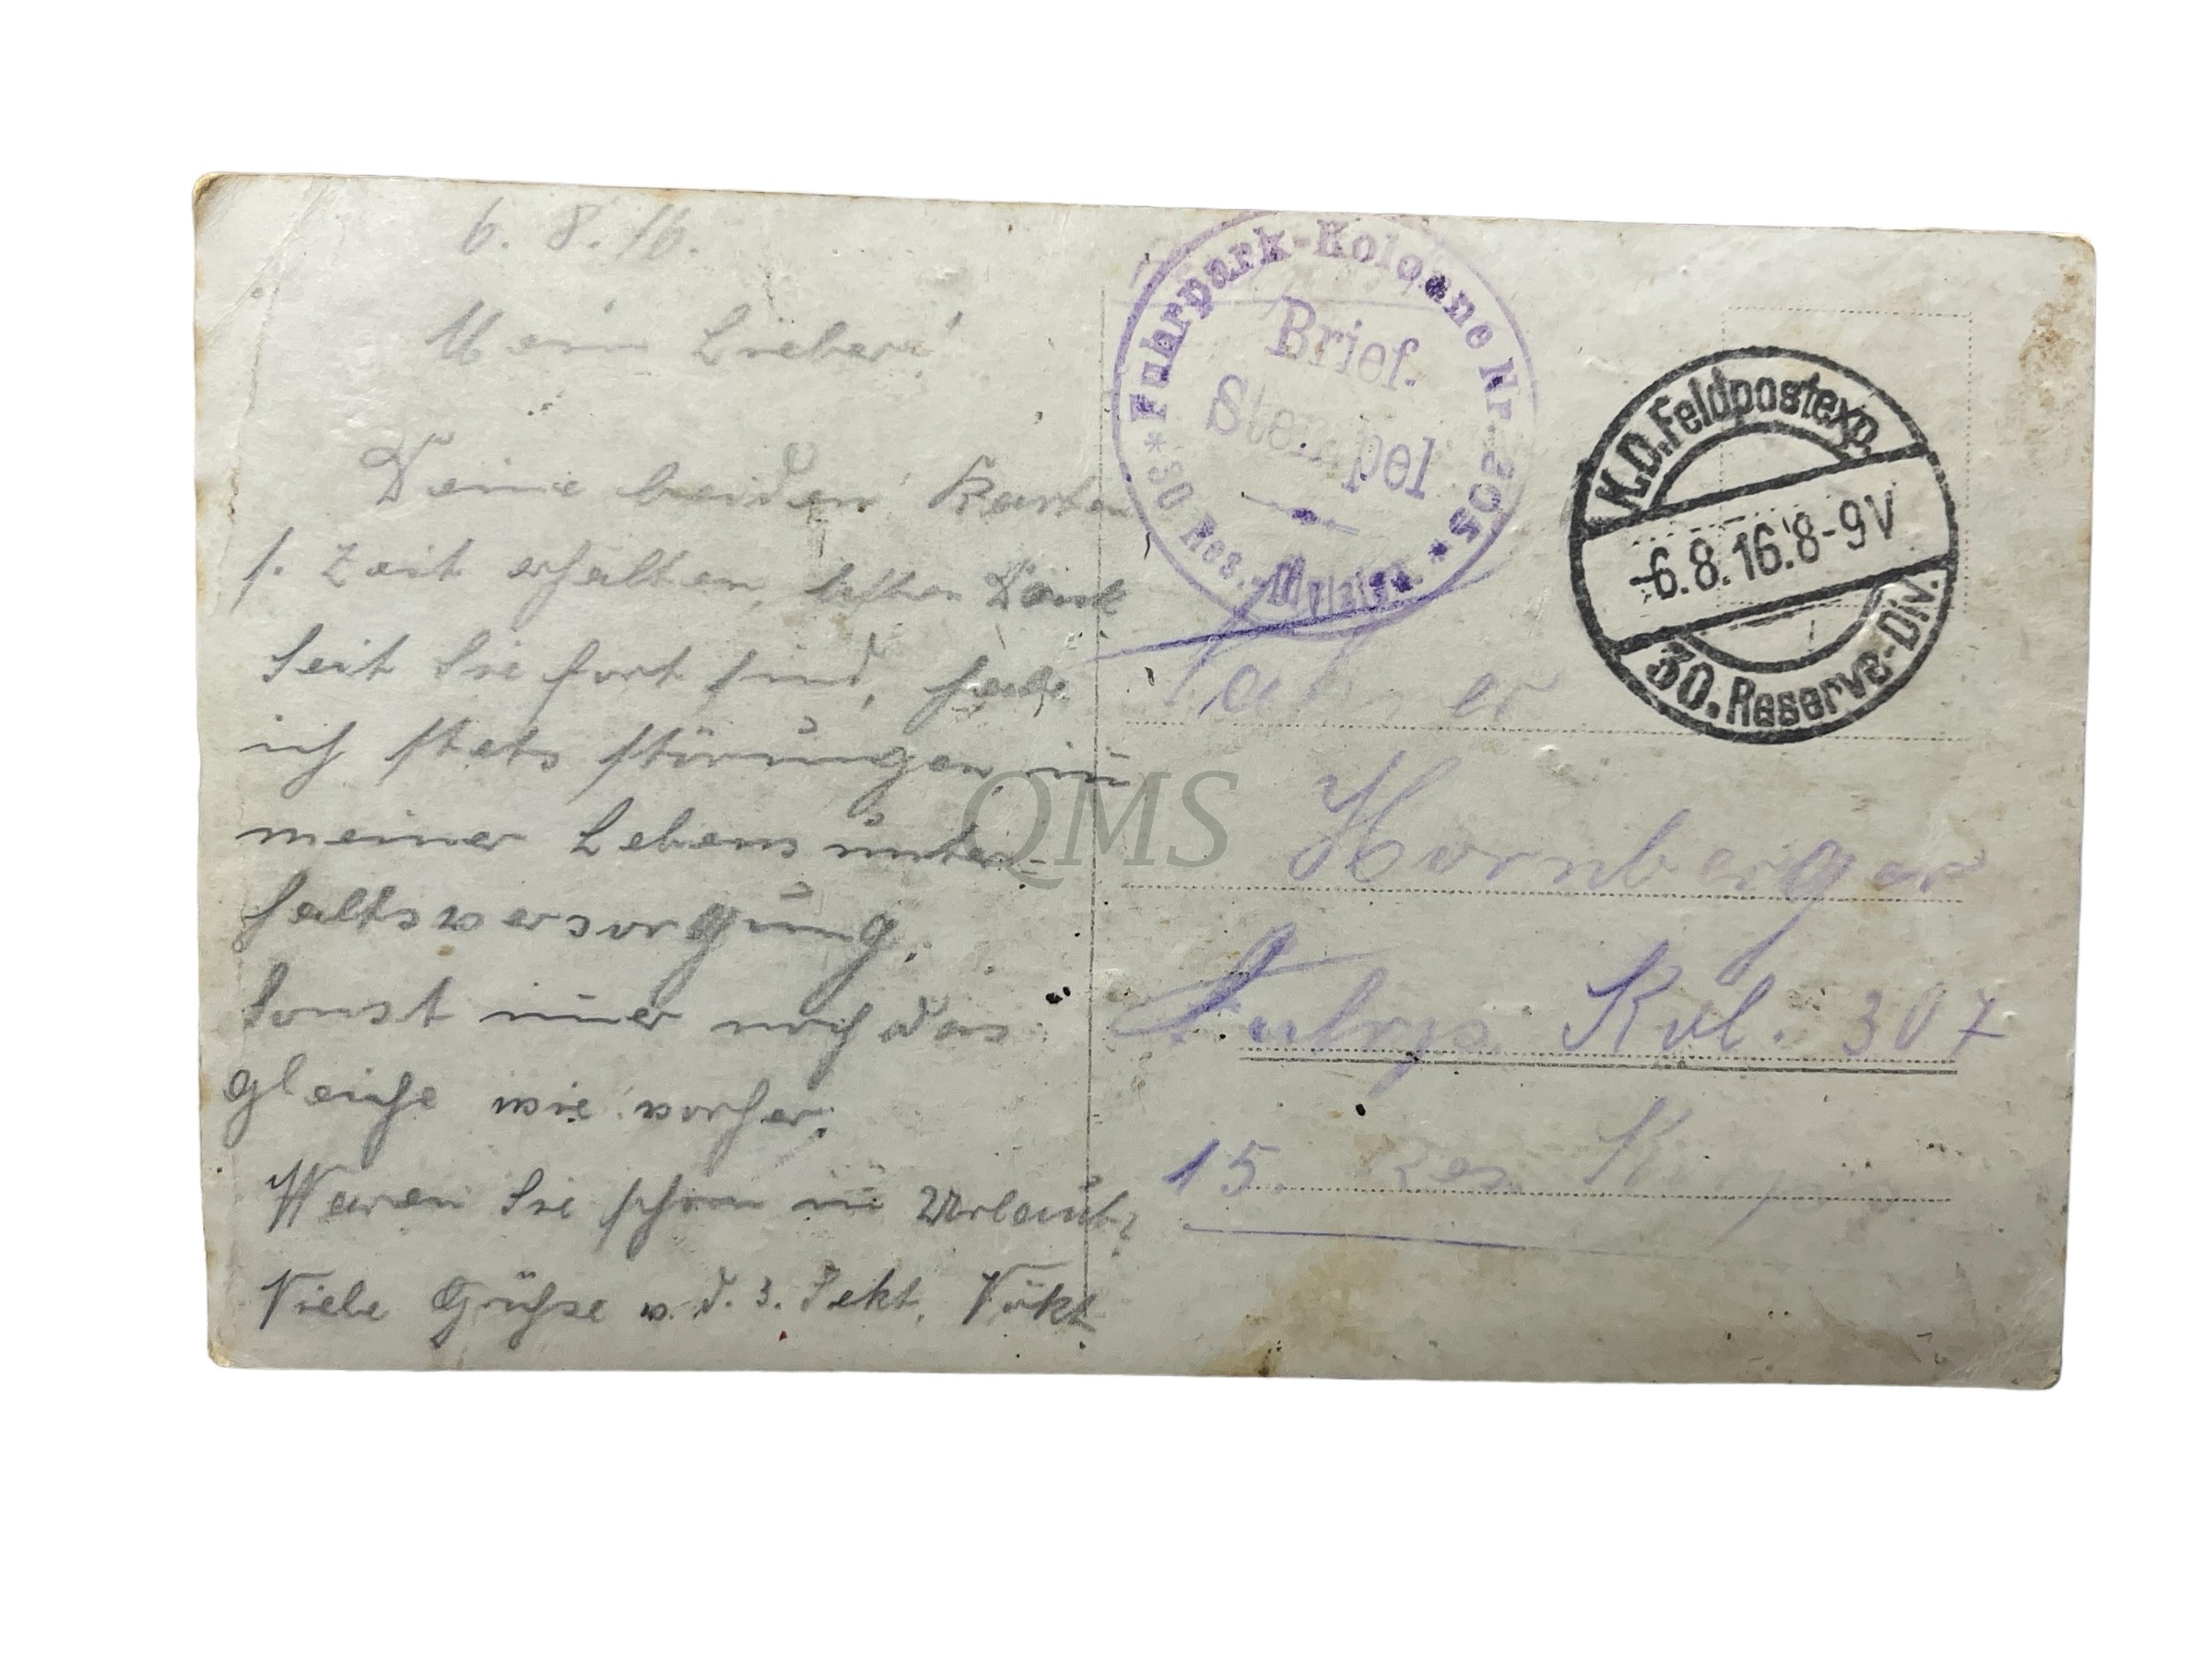 6. 8. 16.
Mein Lieber!
Deine beiden Karten
s. Zeit erhalten, besten Dank
Seit Sie fort sind, habe
ich stets störungen in
meiner Lebensunter-
haltsversorgung.
Sonst im̄er noch das
gleiche wie vorher.
Waren Sie schon in Urlaub?
Viele Grüsse v. d. 3. Sekt.
Fuhrpark-Kolonne Nr.
Brief-
Stempel
30 Res.-Division
K.D.Feldpostexp.
-6.8.16.8-9V
30.Reserve-Div.
Hornberger
Fuhrp. Kol. 307
15. Res. Korps
QMS